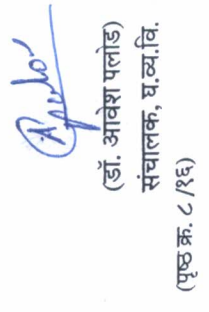 (डॉ. आवेश पलोड)
संचालक, घ.व्य.वि.
(पृष्ठ क्र. ८ /१६)